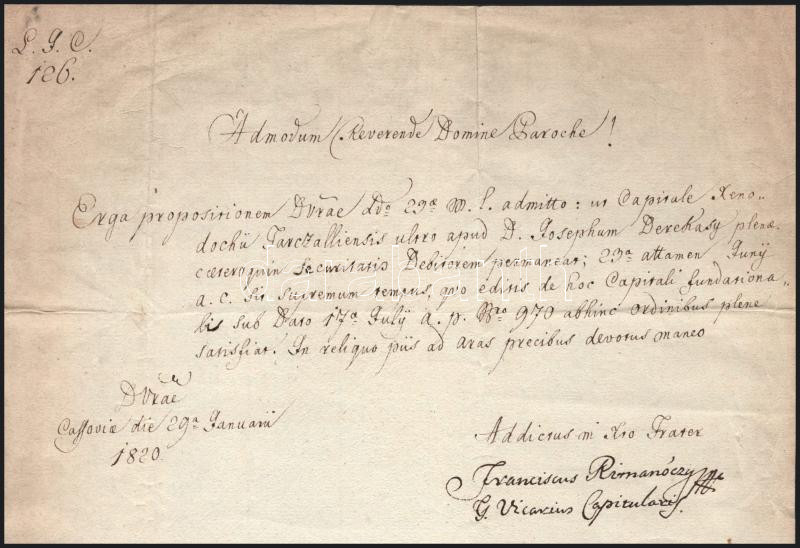 L. J. C.
126.
Admodum Reverende Domine Paroche!
Erga propositionem Dvrae ddo 29a m. l. admitto: ut Capitale Xeno-
dochii Tarczalliensis ultro apud D. Josephum Derchasy plenae
caeteroquin Securitatis Debitorem permaneat; 23a attamen Junij
a. c. sit supremum tempus, quo editis de hoc Capitali fundationa-
lis sub Dato 17a Julij a. p. Nro 970 abhinc ordinibus plene
satisfiat. In reliquo piis ad aras precibus devotus maneo
Dvrae
Cassoviae die 29a Januarii
1820
Addictus in Xto Frater
Franciscus Rimanóczy
G. Vicarius Capitularis.